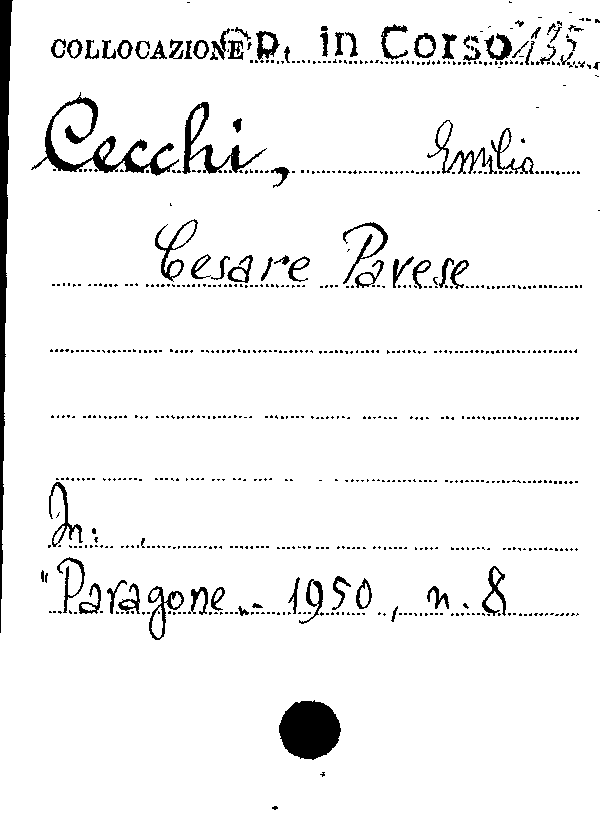 COLLOCAZIONE Op. in Corso 135
Cecchi, Emilio
Cesare Pavese
In:
"Paragone„- 1950, n. 8